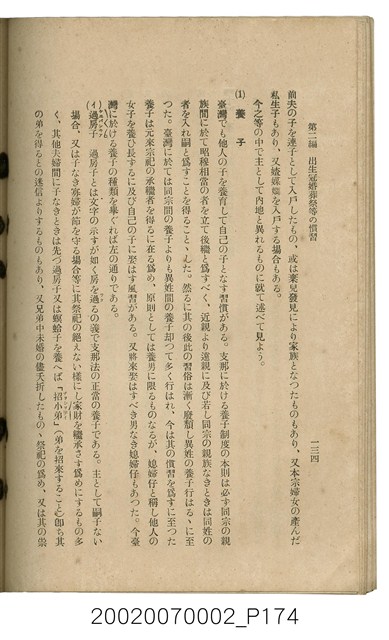 第二編 出生冠婚葬祭等の慣習
一三四
前夫の子を連子として入戸したもの、或は棄兒發見により家族となつたものもあり、又本宗婦女の產んだ
私生子もあり、又娼媒嫺を入戸する場合もある。
今之等の中で主として內地と異れるものに就て述べて見よう。
(1) 養子
臺灣でも他人の子を養育して自己の子となす習慣がある。支那に於ける養子制度の本則は必ず同宗の親
族間に於て昭穆相當の者を立て後繼と爲すべく、近親より遠親に及び若し同宗の親族なきときは同姓の
者を入れ嗣と爲すことを得ること丶した。然るに其の後此の習俗は漸く廢頽し異姓の養子行はる丶に至
つた。臺灣に於ては同宗間の養子よりも異姓間の養子却つて多く行はれ、今は其の慣習を爲すに至つた
養子は元來宗祀の承繼者を得るに在る爲め、原則としては養男に限るものなるが、媳婦仔と稱し他人の
女子を養ひ長ずるに及び自己の子に娶はす風習がある。又將來娶はすべき男なき媳婦仔もあつた。今臺
灣に於ける養子の種類を擧ぐれば左の通りである。
(イ) 過房子 過房子とは文字の示すが如く房を過るの義で支那法の正當の養子である。主として嗣子ない
場合、又は子なき寡婦が節を守る場合等に其祭祀の絕えない樣にし家財を繼承さす爲めにするもの多
く、其他夫婦間に子なきときは先づ過房子又は螟蛉子を養へば「招小弟」(弟を招來すること)卽ち其
の弟を得るとの迷信よりするものもあり、又兄弟中未婚の儘夭折したもの丶祭祀の爲め、又は其の祟
20020070002_P174